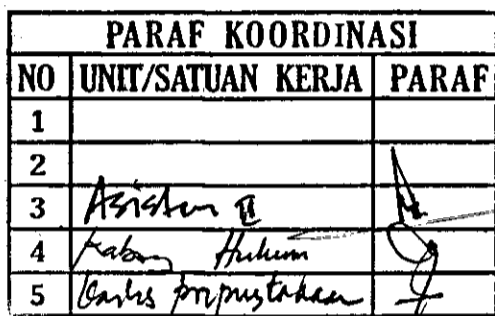 PARAF KOORDINASI
NO UNIT/SATUAN KERJA PARAF
1
2
3 Asisten II
4 Kabag Hukum
5 perpustakaan